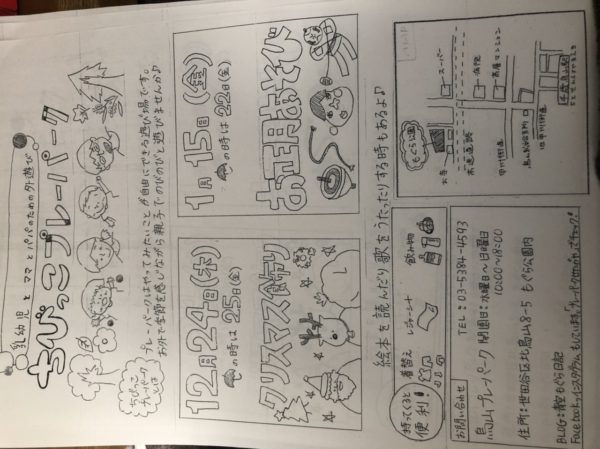 乳幼児とママとパパのための外遊び
ちびっこプレーパーク
ちびっこ
プレーパーク
とは
プレーパークはやってみたいことが自由にできる遊び場です。
お外で季節を感じながら親子でのびのびと遊びませんか♪
12月24日(木)
の時は25日(金)
クリスマス飾り
1月15日(金)
の時は22日(金)
お正月あそび
絵本を読んだり歌をうたったりする時もあるよ♪
持ってくると
便利!
着替え
レジャーシート
飲み物
お問い合わせ
TEL:03-5384-4593
烏山プレーパーク 開園日:水曜日〜日曜日
10:00〜18:00
住所:世田谷区北烏山8-5 もぐら公園内
BLOG:青空もぐら日記
もぐら公園
お寺
スーパー
水道道路
病院
甲州街道
高層マンション
旧甲州街道
千歳烏山駅